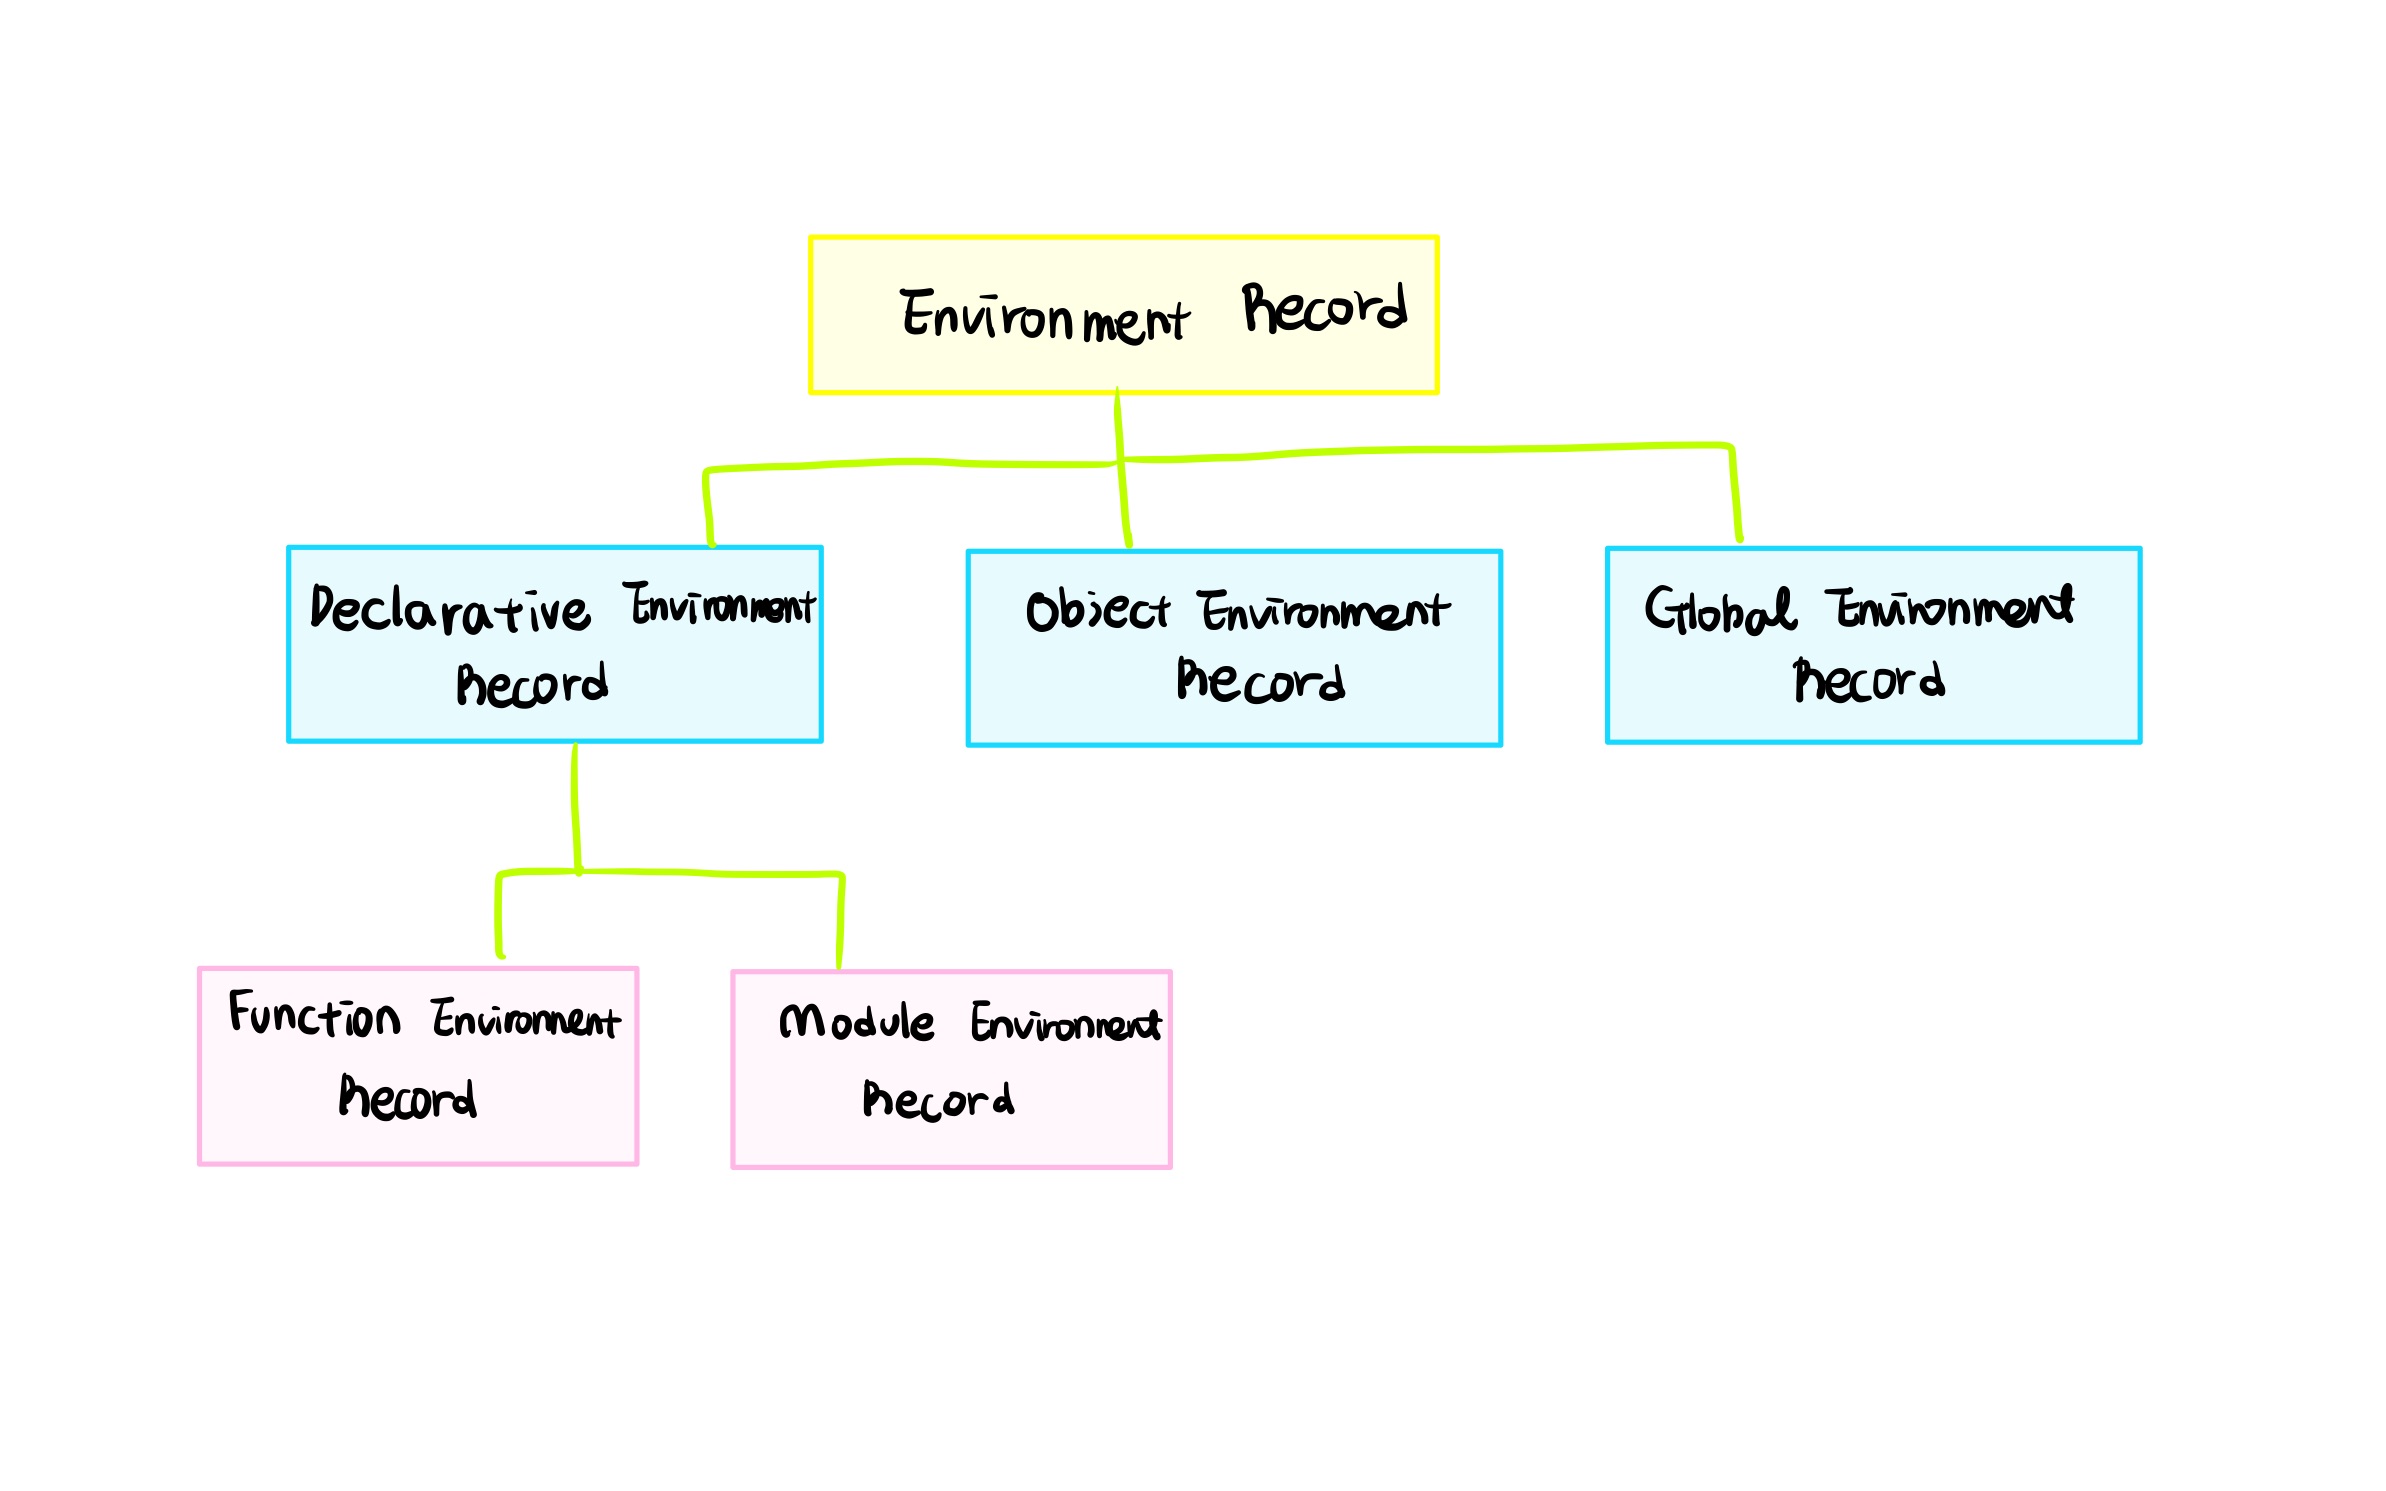 Environment Record
Declarative Environment
Record
Object Environment
Record
Global Environment
Record
Function Environment
Record
Module Environment
Record